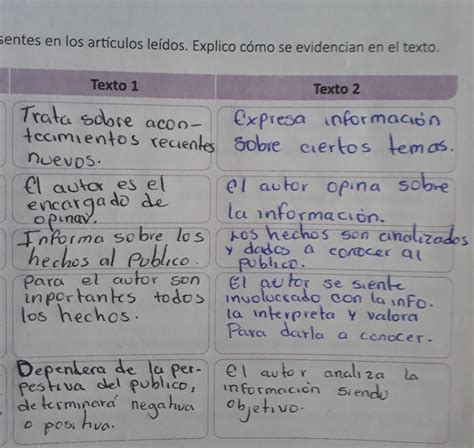 sentes en los artículos leídos. Explico cómo se evidencian en el texto.
Texto 1
Texto 2
Trata sobre acon-
tecimientos recientes
nuevos.
Expresa información
sobre ciertos temas.
El autor es el
encargado de
opinar.
el autor opina sobre
la información.
Informa sobre los
hechos al Publico.
Los hechos son analizados
y dados a conocer al
público.
para el autor son
inportantes todos
los hechos.
El autor se siente
involucrado con la info.
la interpreta y valora
Para darla a conocer.
Dependera de la per-
pestiva del publico,
determinará negativa
o positiva.
el autor analiza la
información siendo
objetivo.